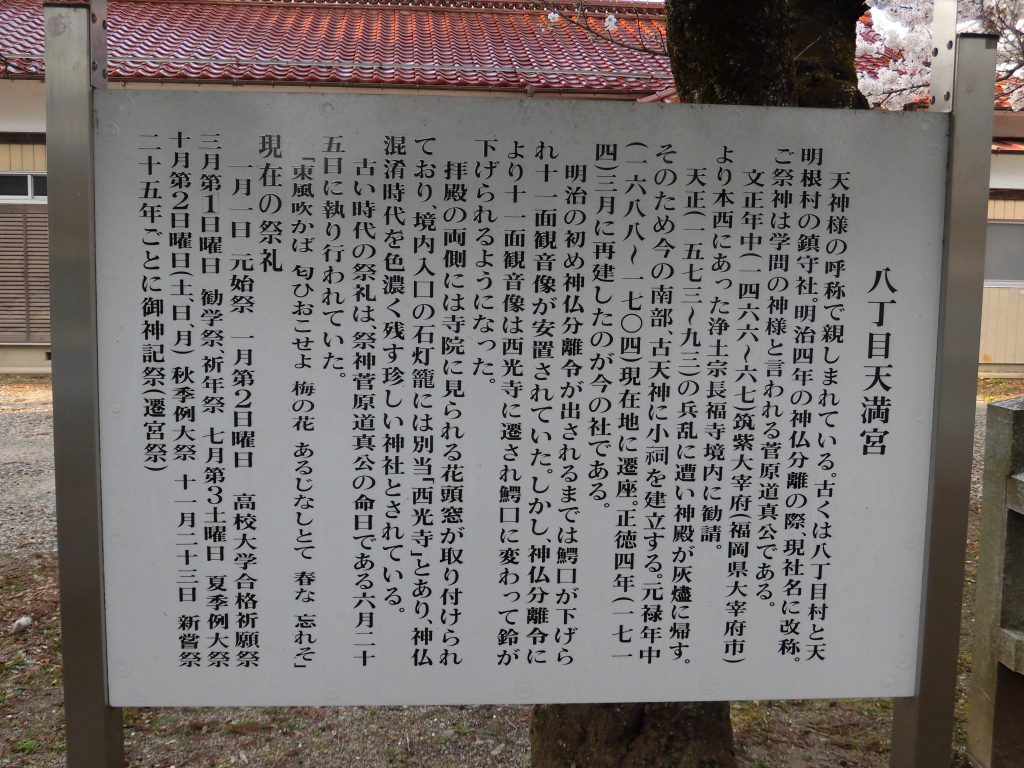 八丁目天満宮
天神様の呼称で親しまれている。古くは八丁目村と天
明根村の鎮守社。明治四年の神仏分離の際、現社名に改称。
ご祭神は学問の神様と言われる菅原道真公である。
文正年中(一四六六～六七)筑紫大宰府(福岡県大宰府市)
より本西にあった浄土宗長福寺境内に勧請。
天正(一五七三～九三)の兵乱に遭い神殿が灰燼に帰す。
そのため今の南部、古天神に小祠を建立する。元禄年中
(一六八八～一七〇四)現在地に遷座。正徳四年(一七一
四)三月に再建したのが今の社である。
明治の初め神仏分離令が出されるまでは鰐口が下げら
れ十一面観音像が安置されていた。しかし、神仏分離令に
より十一面観音像は西光寺に遷され鰐口に変わって鈴が
下げられるようになった。
拝殿の両側には寺院に見られる花頭窓が取り付けられ
ており、境内入口の石灯籠には別当「西光寺」とあり、神仏
混淆時代を色濃く残す珍しい神社とされている。
古い時代の祭礼は、祭神菅原道真公の命日である六月二十
五日に執り行われていた。
「東風吹かば 匂ひおこせよ 梅の花 あるじなしとて 春な 忘れそ」
現在の祭礼
一月一日 元始祭 一月第2日曜日 高校大学合格祈願祭
三月第1日曜日 勧学祭・祈年祭 七月第3土曜日 夏季例大祭
十月第2日曜日(土、日、月) 秋季例大祭 十一月二十三日 新嘗祭
二十五年ごとに御神記祭(遷宮祭)